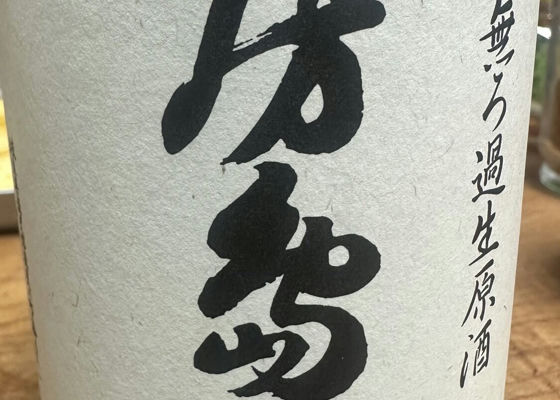 無ろ過生原酒
房島